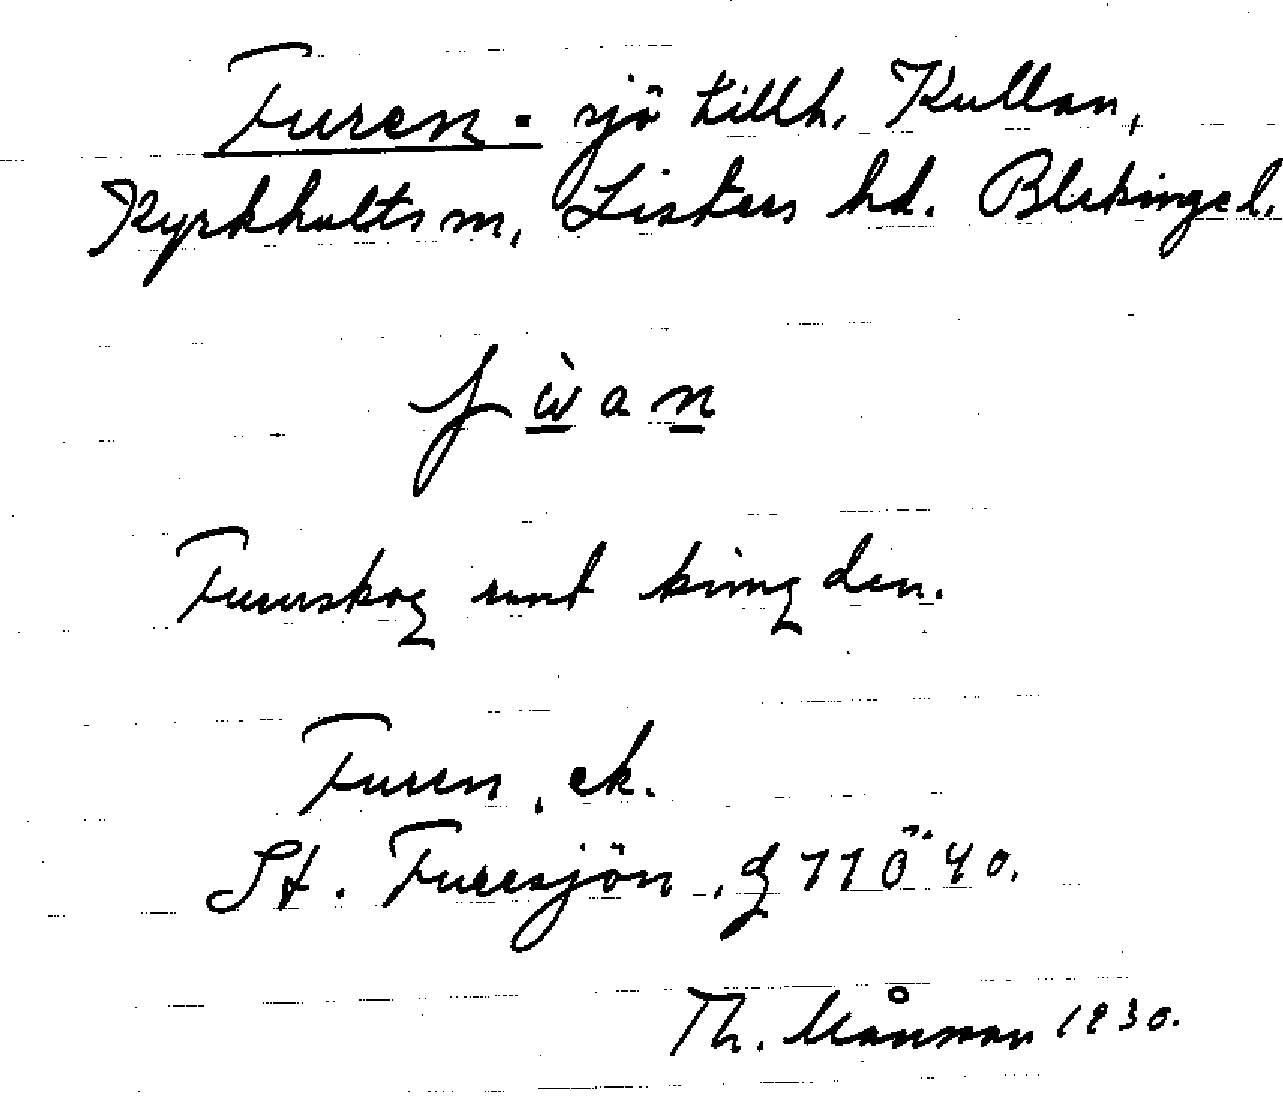 Furen. sjö tillh. Kullan,
Kyrkhults sn, Listers hd. Blekinge l.
fẁan
Furuskog runt kring den.
Furen, ek.
St. Furesjön, g 11 ö 40.
Th. Månson 1930.